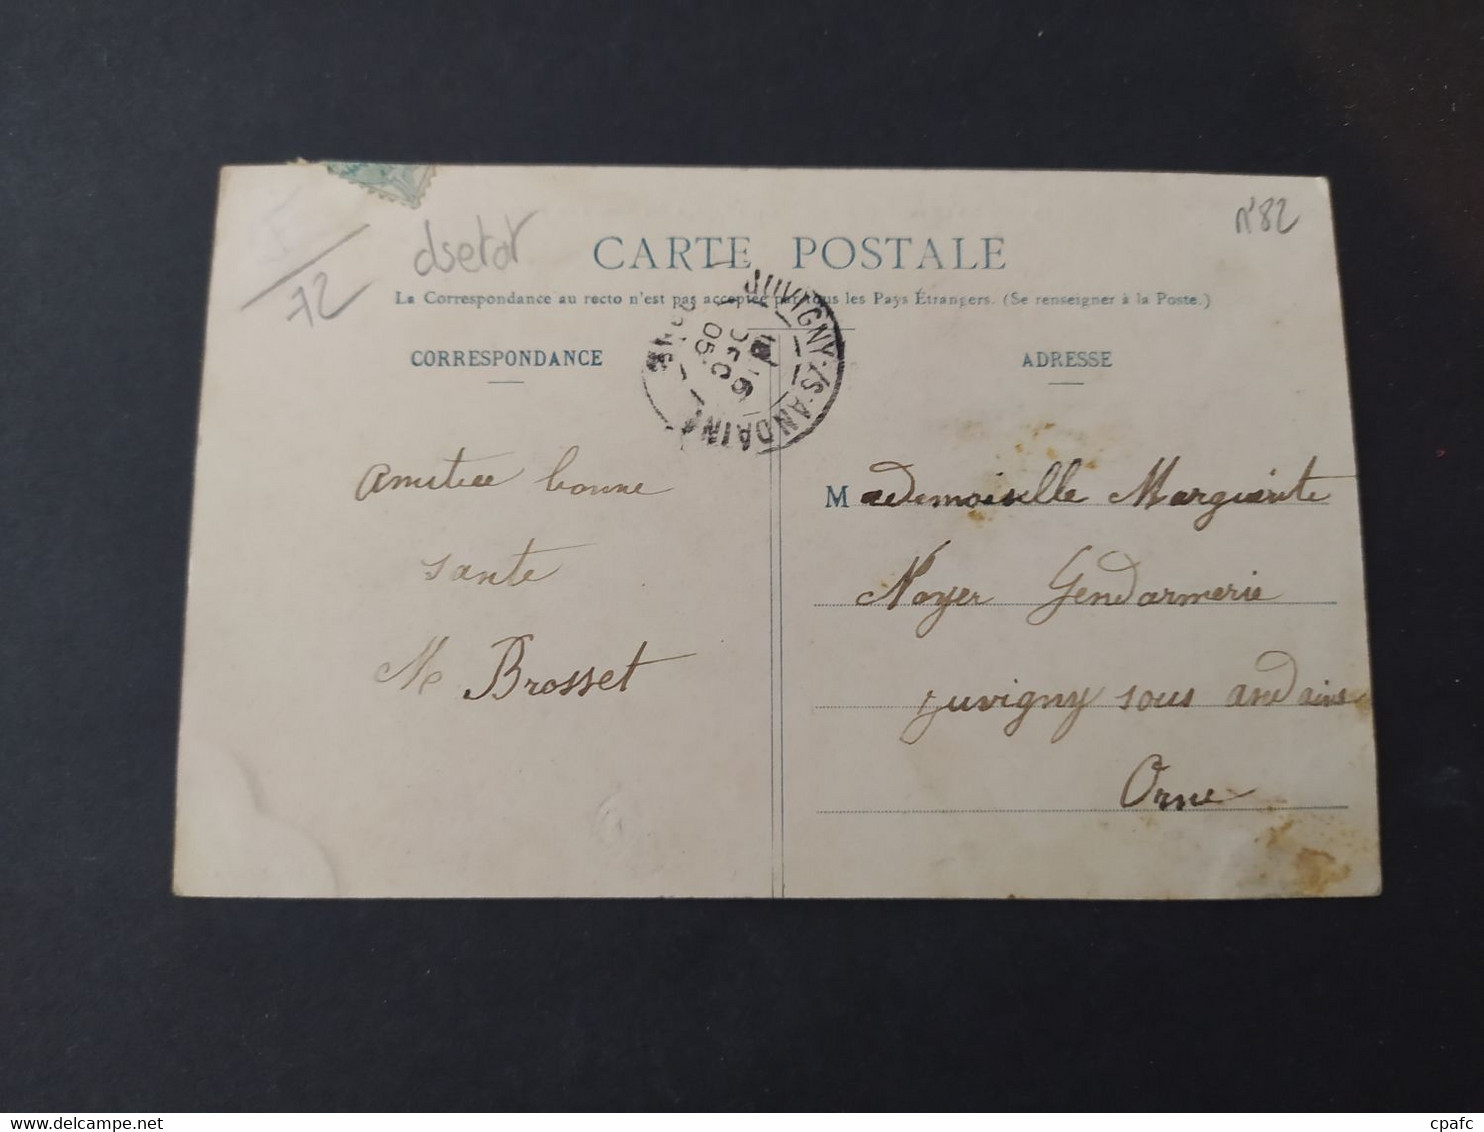 n°82
72
CARTE POSTALE
La Correspondance au recto n'est pas acceptée par tous les Pays Étrangers. (Se renseigner à la Poste.)
JUVIGNY-S/S-ANDAINE
16
DEC
05
ORNE
CORRESPONDANCE
ADRESSE
amitiee bonne
sante
M Brosset
Mademoiselle Marguerite
Noyer Gendarmerie
Juvigny sous andaine
Orne
cpafc